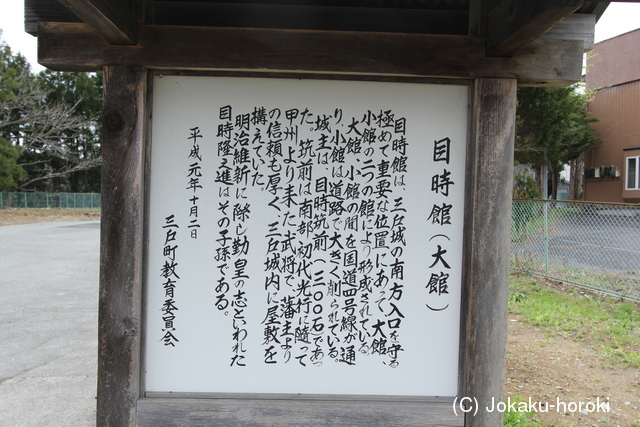 目時館(大館)
目時館は、三戸城の南方入口を守る
極めて重要な位置にあって、大館、
小館の二つの館により形成されている。
大館、小館の間を国道四号線が通
り、小館は道路で大きく削られている。
城主は、目時筑前(三〇〇石)であっ
た。筑前は南部初代光行に随って
甲州より来た武将で、藩主より
の信頼も厚く、三戸城内に屋敷を
構えていた。
明治維新に際し勤皇の志といわれた
目時隆之進はその子孫である。
平成元年十月二日
三戸町教育委員会
(C) Jokaku-horoki